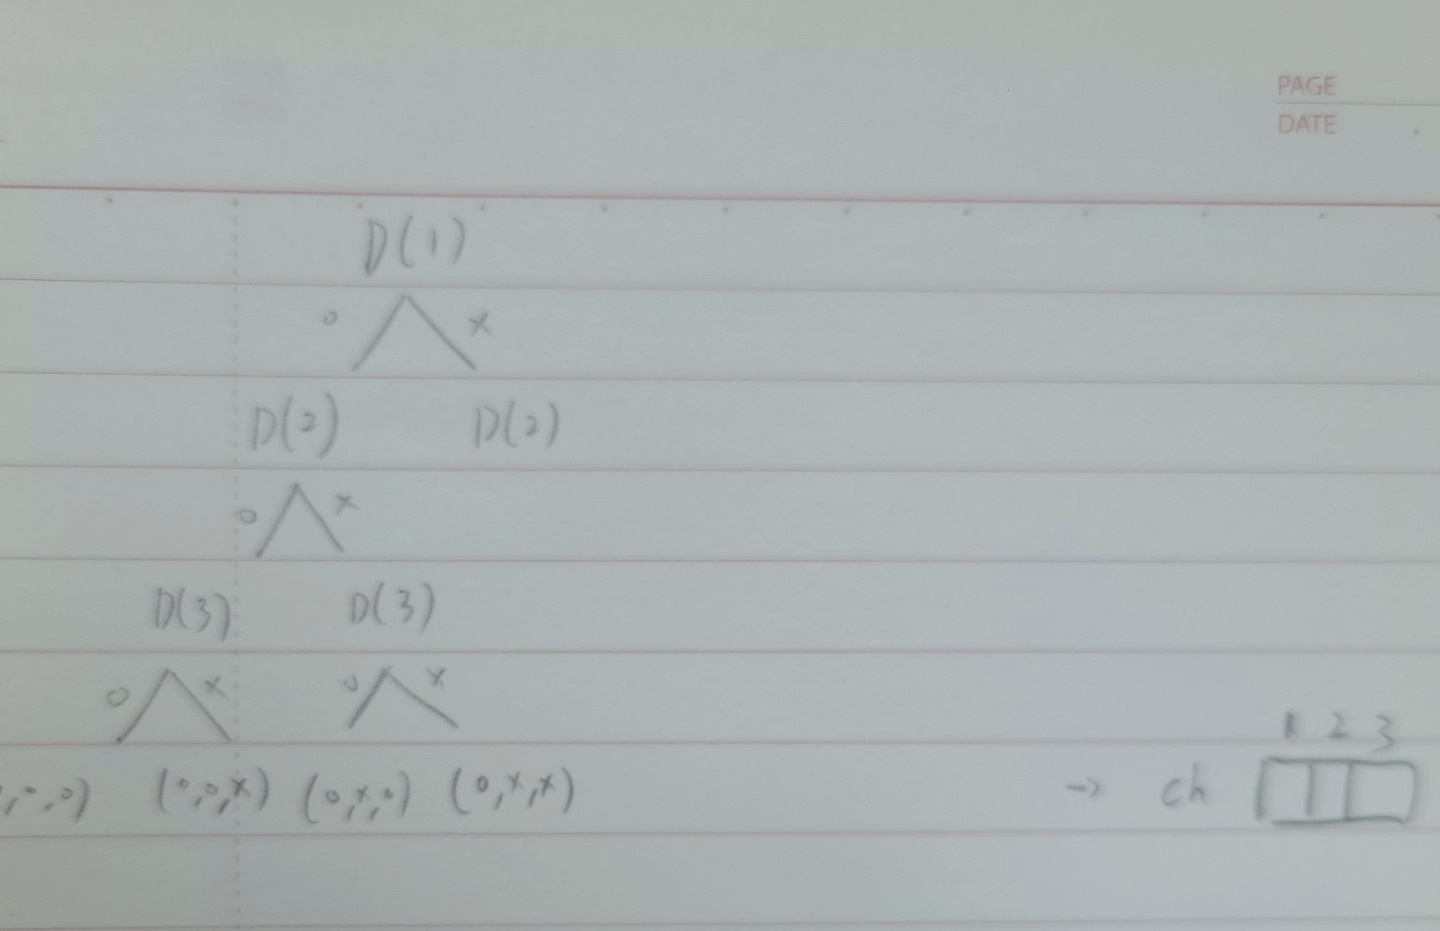 PAGE
DATE
D(1)
o x
D(2) D(2)
o x
D(3) D(3)
o x o x
1 2 3
,o,o) (o,o,x) (o,x,o) (o,x,x) → ch